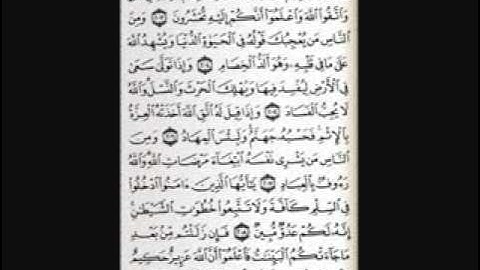 وَٱتَّقُوا۟ ٱللَّهَ وَٱعْلَمُوٓا۟ أَنَّكُمْ إِلَيْهِ تُحْشَرُونَ ۝ وَمِنَ
ٱلنَّاسِ مَن يُعْجِبُكَ قَوْلُهُۥ فِى ٱلْحَيَوٰةِ ٱلدُّنْيَا وَيُشْهِدُ ٱللَّهَ
عَلَىٰ مَا فِى قَلْبِهِۦ وَهُوَ أَلَدُّ ٱلْخِصَامِ ۝ وَإِذَا تَوَلَّىٰ سَعَىٰ
فِى ٱلْأَرْضِ لِيُفْسِدَ فِيهَا وَيُهْلِكَ ٱلْحَرْثَ وَٱلنَّسْلَ وَٱللَّهُ
لَا يُحِبُّ ٱلْفَسَادَ ۝ وَإِذَا قِيلَ لَهُ ٱتَّقِ ٱللَّهَ أَخَذَتْهُ ٱلْعِزَّةُ
بِٱلْإِثْمِ فَحَسْبُهُۥ جَهَنَّمُ وَلَبِئْسَ ٱلْمِهَادُ ۝ وَمِنَ
ٱلنَّاسِ مَن يَشْرِى نَفْسَهُ ٱبْتِغَآءَ مَرْضَاتِ ٱللَّهِ وَٱللَّهُ
رَءُوفٌۢ بِٱلْعِبَادِ ۝ يَٰٓأَيُّهَا ٱلَّذِينَ ءَامَنُوا۟ ٱدْخُلُوا۟
فِى ٱلسِّلْمِ كَآفَّةً وَلَا تَتَّبِعُوا۟ خُطُوَٰتِ ٱلشَّيْطَٰنِ
إِنَّهُۥ لَكُمْ عَدُوٌّ مُّبِينٌ ۝ فَإِن زَلَلْتُم مِّنۢ بَعْدِ
مَا جَآءَتْكُمُ ٱلْبَيِّنَٰتُ فَٱعْلَمُوٓا۟ أَنَّ ٱللَّهَ عَزِيزٌ حَكِيمٌ